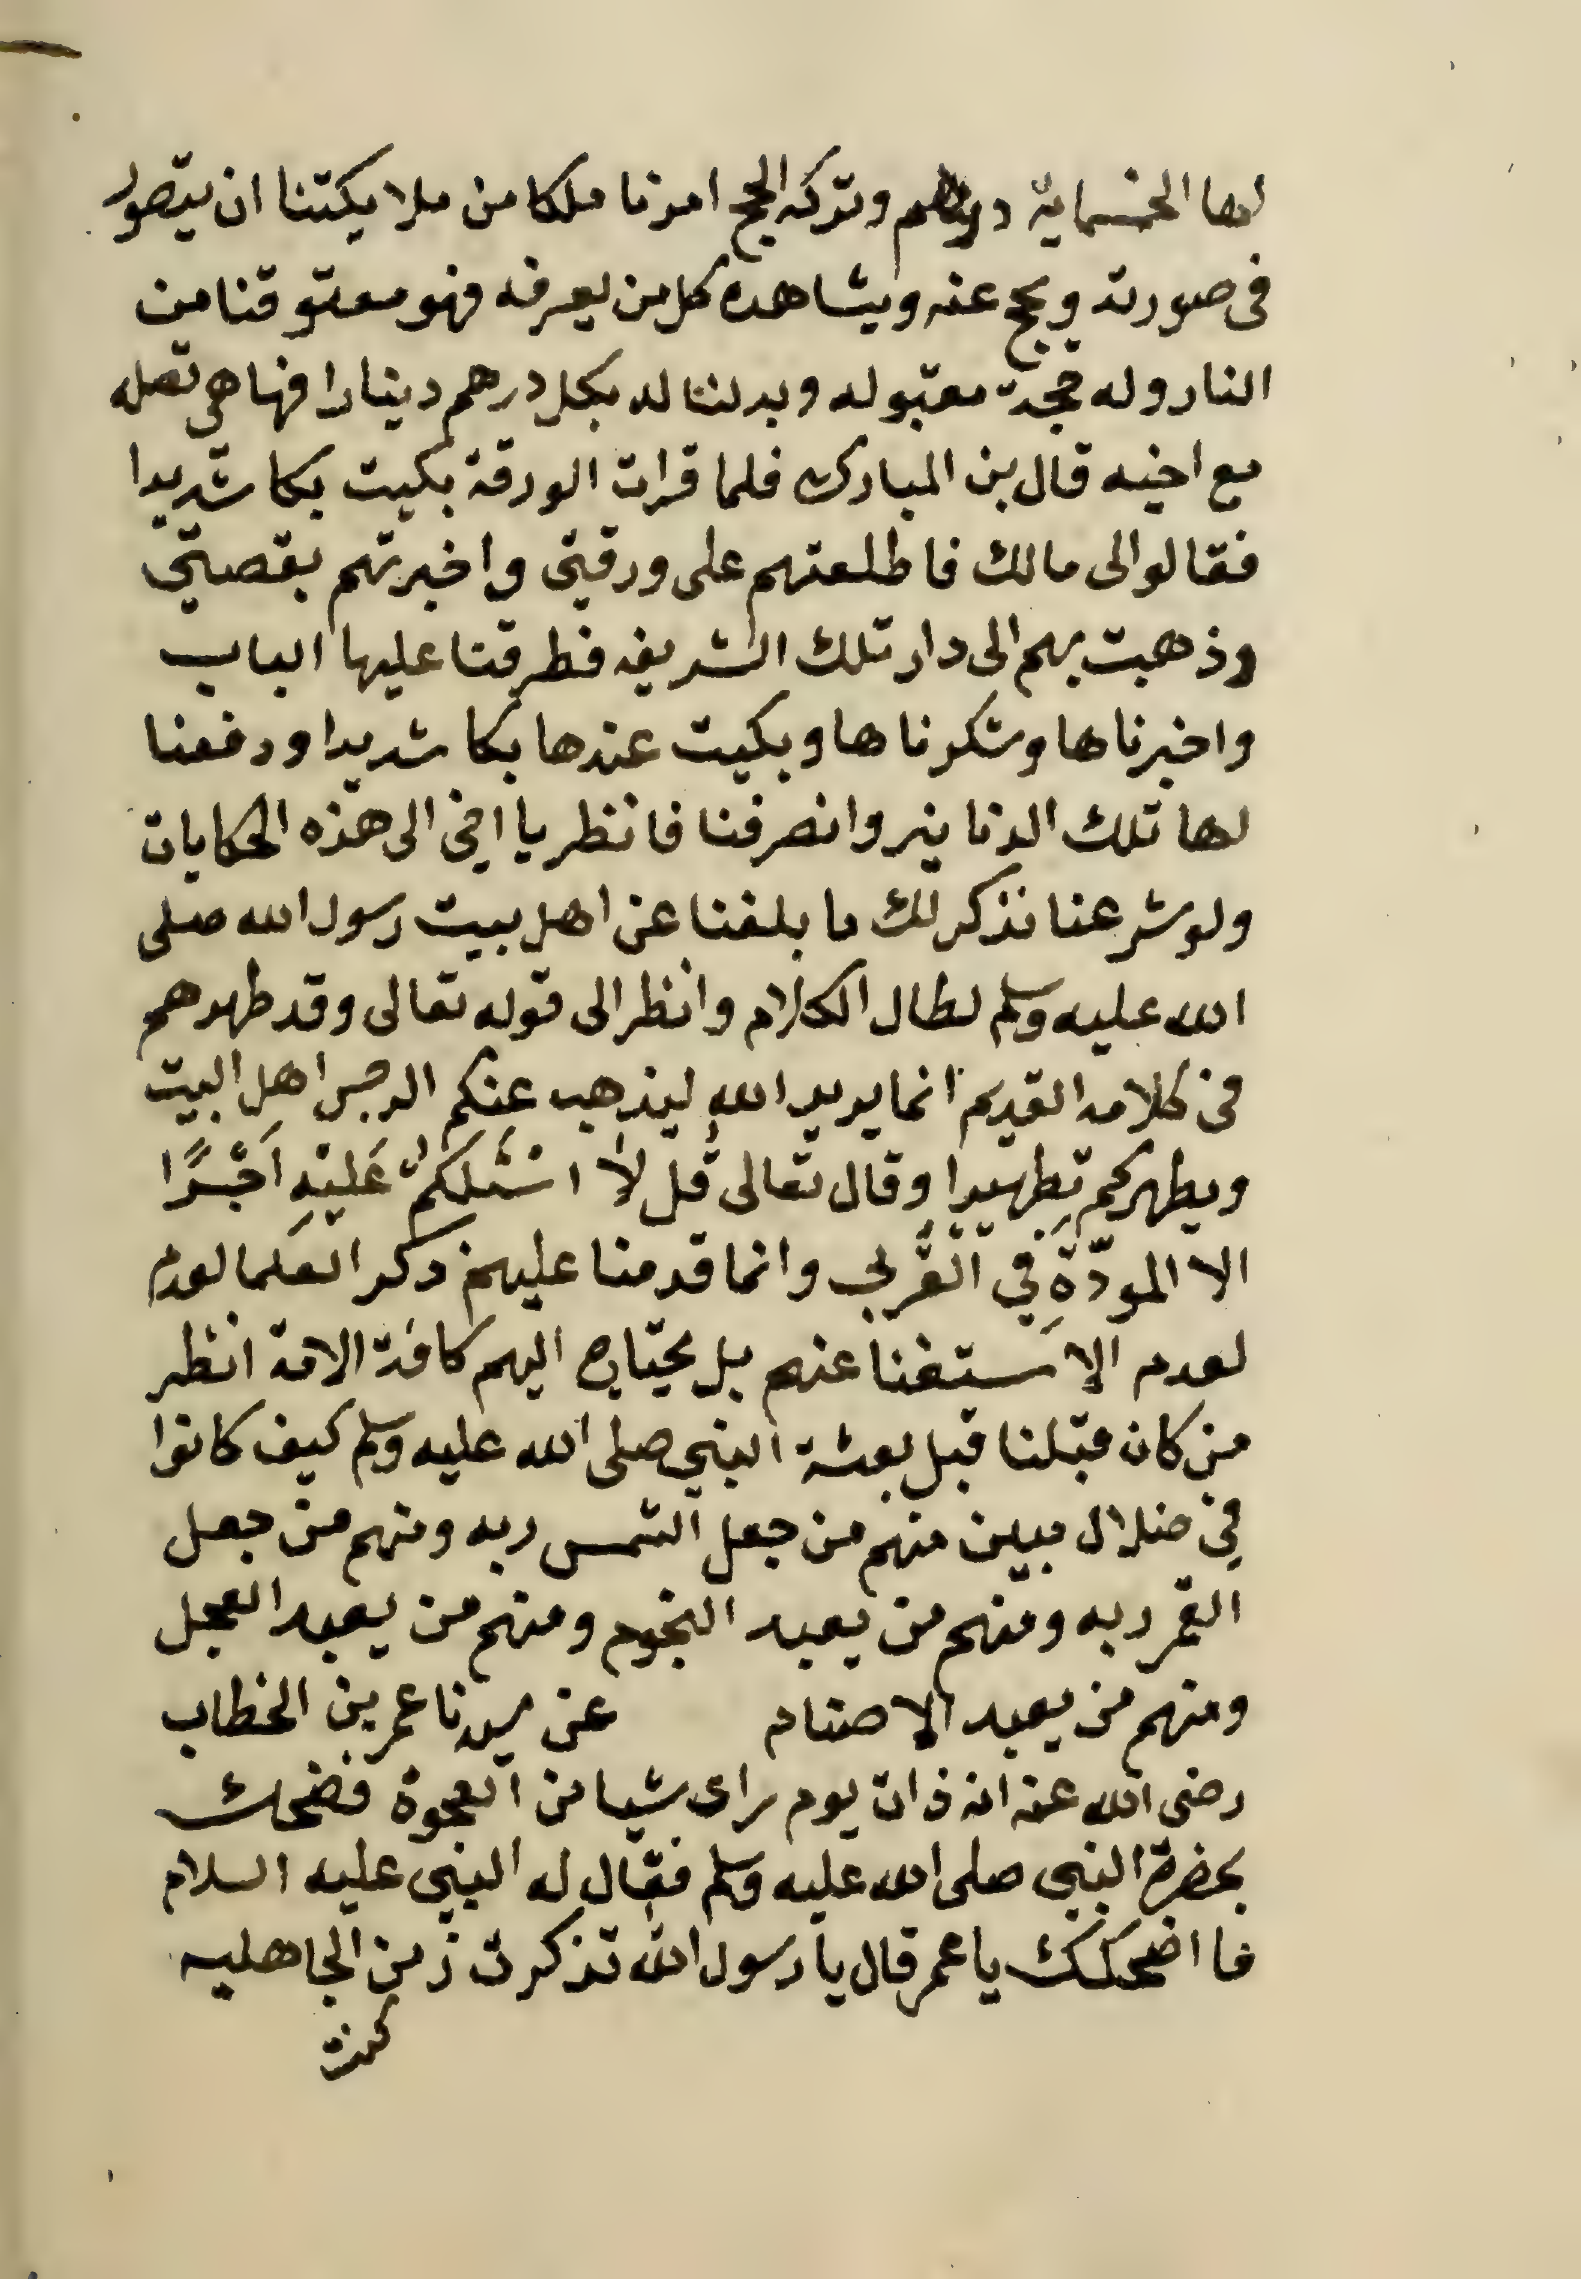 لها الخمسماية درهم وتركه الحج امرنا ملكا من ملايكتنا ان يتصور
فى صورته ويحج عنه ويشاهده كل من يعرفه فهو معتوقنا من
النار وله حجة مقبوله وبدلنا له بكل درهم دينارا فها هى تصله
مع اخيه قال بن المبارك فلما قرات الورقة بكيت بكا شديدا
فقالوا لى مالك فاطلعتهم على ورقتى واخبرتهم بقصتي
وذهبت بهم الى دار تلك الشريفه فطرقنا عليها الباب
واخبرناها وشكرناها وبكيت عندها بكا شديدا ودفعنا
لها تلك الدنانير وانصرفنا فانظر يا اخى الى هذه الحكايات
ولو شرعنا نذكر لك ما بلغنا عن اهل بيت رسول الله صلى
الله عليه وسلم لطال الكلام وانظر الى قوله تعالى وقد طهرهم
فى كلامه القديم انما يريد الله ليذهب عنكم الرجس اهل البيت
ويطهركم تطهيرا وقال تعالى قُل لاَ اسْئلكمْ عَليْهِ اَجْرًا
الا المودّةَ فِي القُربى وانما قدمنا عليهم ذكر العلما لعدم
لعدم الاستغنا عنهم بل يحتاج اليهم كافة الامة انظر
من كان قبلنا قبل بعثة النبي صلى الله عليه وسلم كيف كانوا
في ضلال مبين منهم من جعل الشمس ربه ومنهم من جعل
القمر ربه ومنهم من يعبد النجوم ومنهم من يعبد العجل
ومنهم من يعبد الاصنام عن سيدنا عمر بن الخطاب
رضى الله عنه انه ذات يوم راى شيا من العجوة فضحك
بحضرة النبي صلى الله عليه وسلم فقال له النبي عليه السلام
ما اضحكك يا عمر قال يا رسول الله تذكرت زمن الجاهليه
كنت